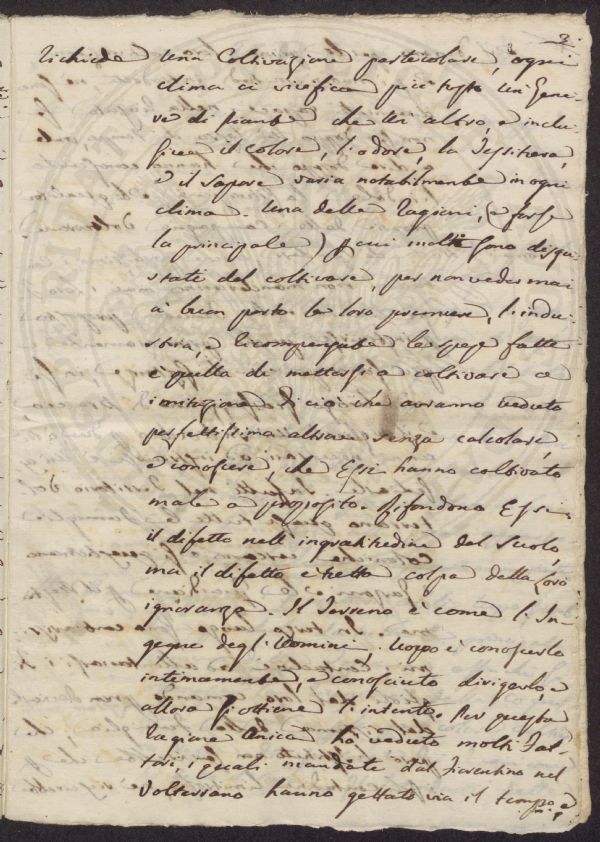 3.
richiede una Coltivazione particolare, ogni
clima ci vivifica più tosto un Gene-
re di piante che un altro, e inclu-
sive il colore, l'odore, la Tessitura,
e il sapore varia notabilmente in ogni
clima. Una delle ragioni, (e forse
la principale) p cui molti sono disgu-
stati del coltivare, per non veder mai
a buon porto le loro premure, l'indu-
stria, e ricompensate le spese fatte
è quella di mettersi a coltivare a
imitazione di ciò che avranno veduto
perfettissimo altrove senza calcolare,
e conoscere, che Essi hanno coltivato
male a proposito. Rifondono Essi
il difetto nell'ingratitudine del Suolo,
ma il difetto è tutto colpa della Loro
ignoranza. Il Terreno è come l'In-
gegno degl'Uomini, uopo è conoscerlo
intimamente, e conosciuto dirigerlo, e
allora si ottiene l'intento. Per questa
ragione unica ho veduto molti Fat-
tori, i quali mandati dal Fiorentino nel
Volterrano hanno gettato via il tempo, e